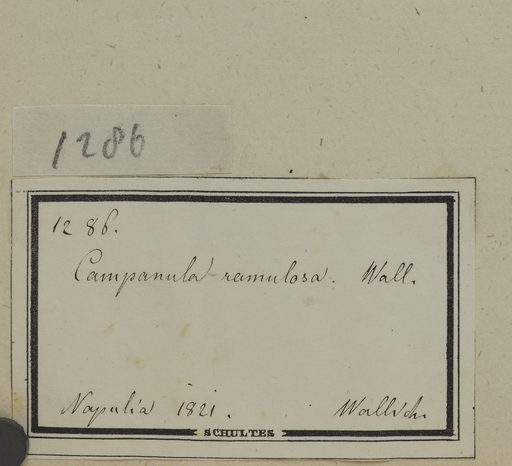 1286
1286.
Campanula ramulosa. Wall.
Napalia 1821. Wallich.
SCHULTES